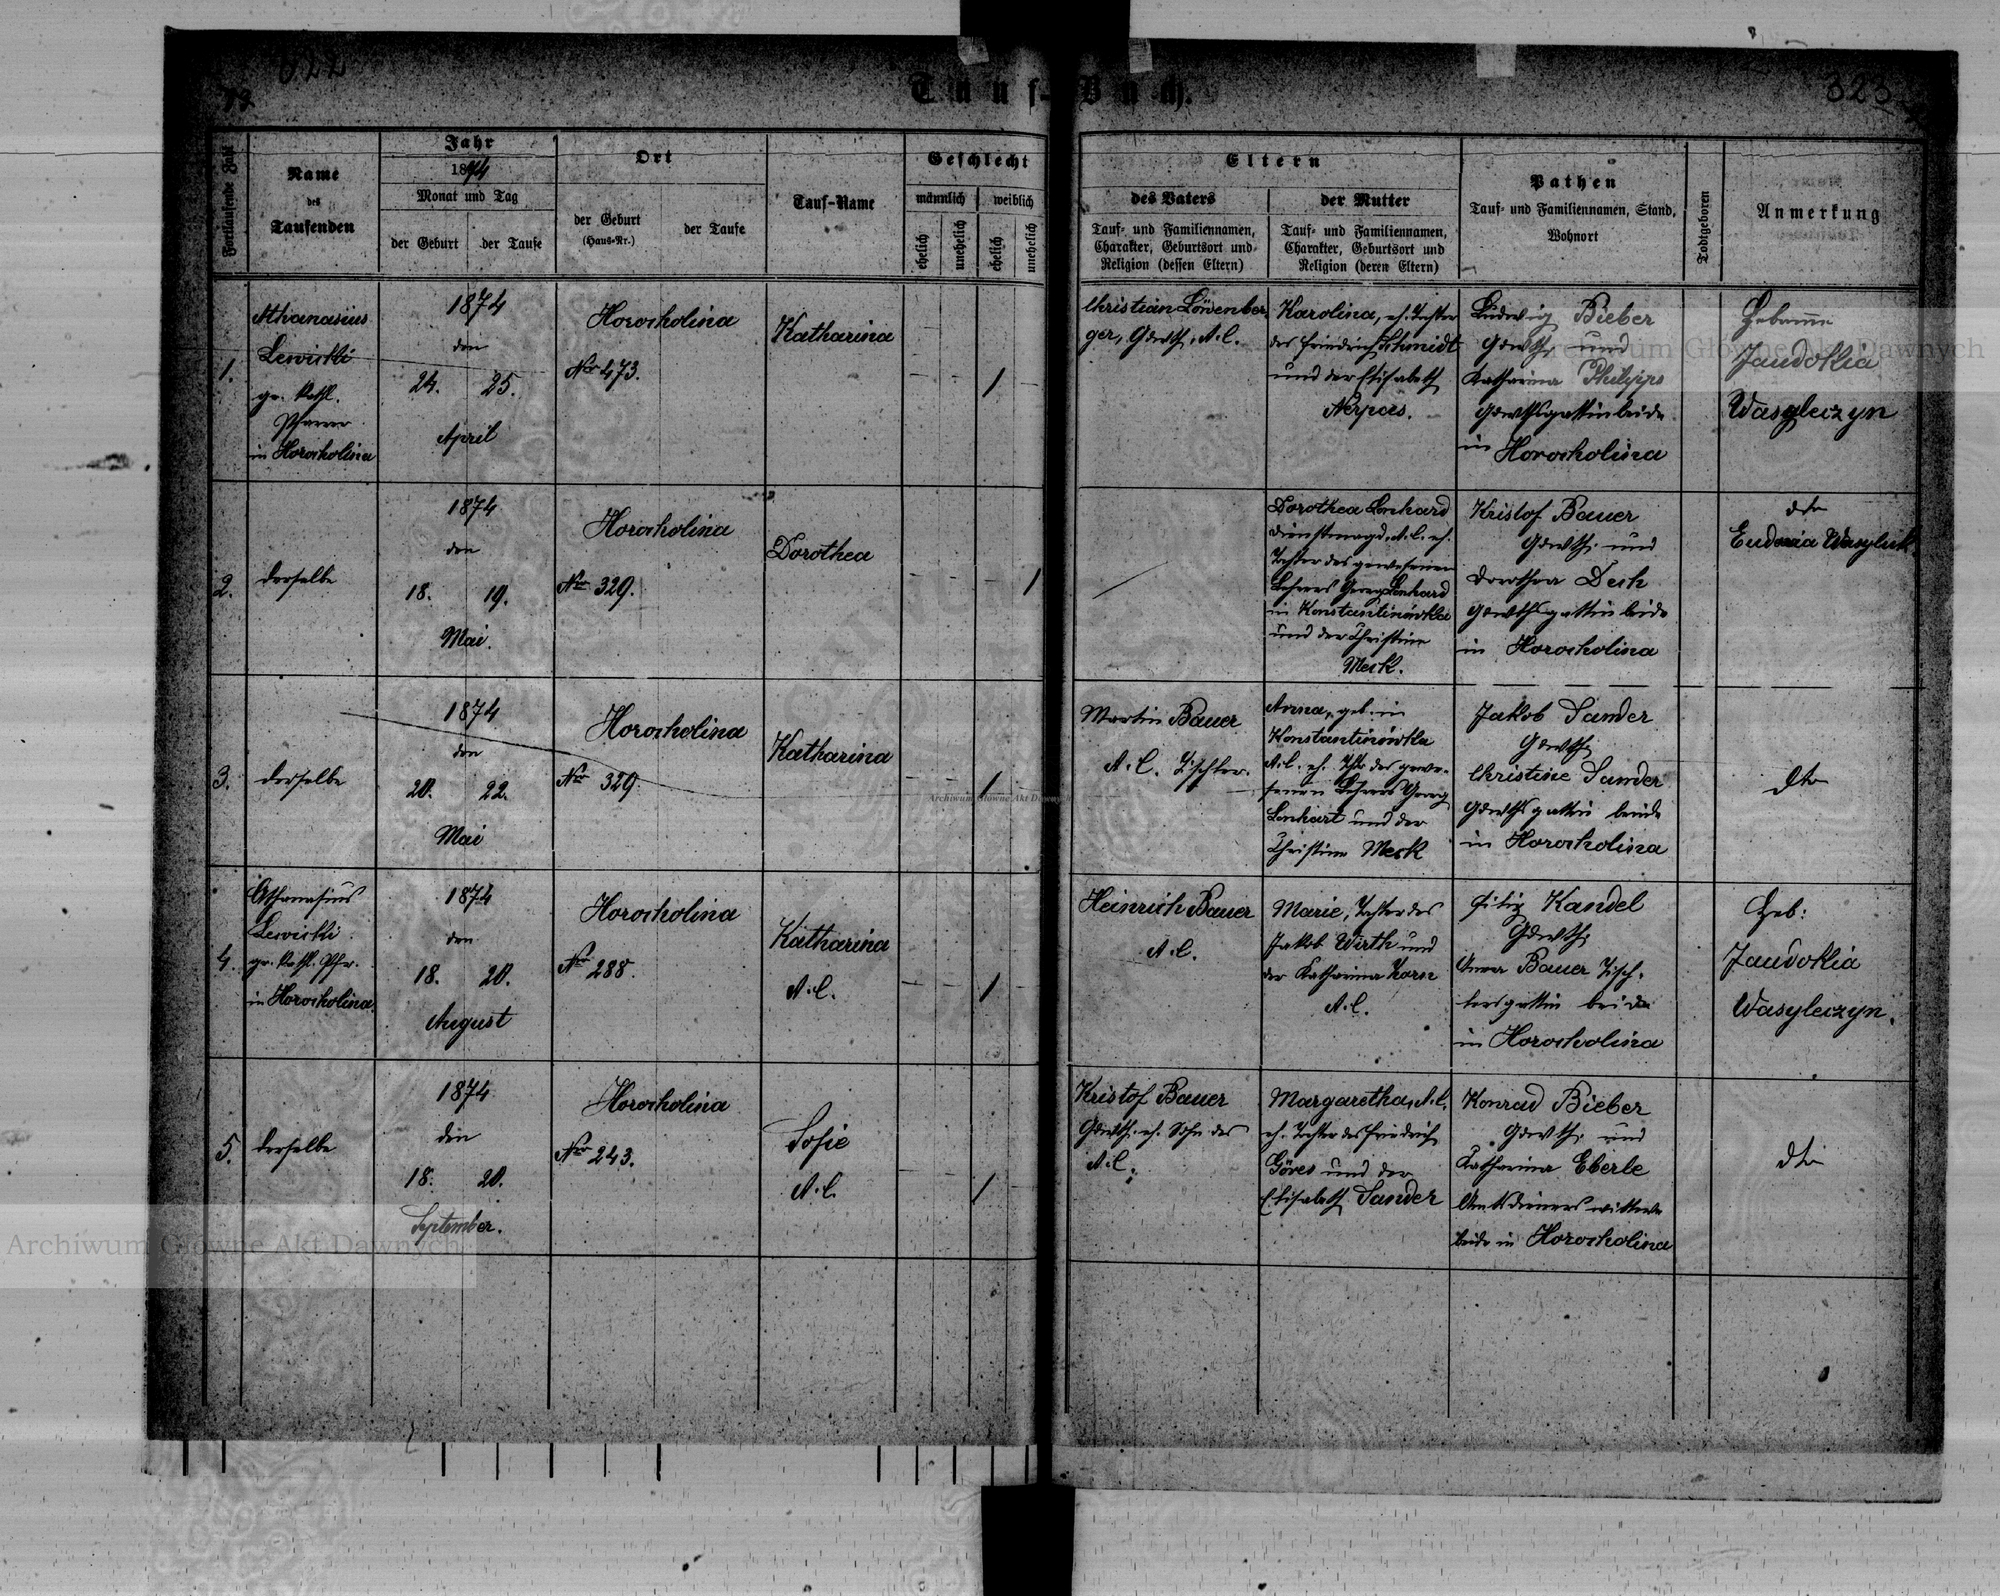 322
Tauf-Buch.
323
Fortlaufende Zahl
Name
des
Taufenden
Jahr
1874
Monat und Tag
der Geburt
der Taufe
Ort
der Geburt
(Haus-Nr.)
der Taufe
Tauf-Name
Geschlecht
männlich
weiblich
ehelich
unehelich
ehelich
unehelich
Eltern
des Vaters
Tauf- und Familiennamen,
Charakter, Geburtsort und
Religion (dessen Eltern)
der Mutter
Tauf- und Familiennamen,
Charakter, Geburtsort und
Religion (deren Eltern)
Pathen
Tauf- und Familiennamen, Stand,
Wohnort
Todtgeboren
Anmerkung
1.
Athanasius
Lewicki
gr. kathl.
Pfarrer
in Horocholina
1874
den
24. 25.
April
Horocholina
Nro 473.
Katharina
Christian Löwenber
ger, Gdwth, A.C.
Karolina, eh. Tochter
des Friedrich Schmidt
und der Elisabeth
Ludwig Bieber
Gdwth, und
Katharina Philipps
Gdwthsgattin beide
in Horocholina
Hebamme
Jaudokia
Wasyleczyn
2.
derselbe
1874
den
18. 19.
Mai.
Horocholina
Nro 329.
Dorothea
Dorothea Lenhard
Dienstmagd, A.C. eh.
Tochter des gewesenen
Lehrers Georg Lenhard
in Konstantinówka
und der Christine
Merk.
Kristof Bauer
Gdwth. und
Dorothea Desh
Gdwthsgattin beide
in Horocholina
dto
Eudoxia Wasyluk
3.
derselbe
1874
den
20. 22.
Mai
Horocholina
Nro 329
Katharina
Martin Bauer
A.C. Tischler.
Anna, geb. in
Konstantinówka
A.C. eh. Tcht. des gewe-
senen Lehrers Georg
Lenhart und der
Christine Merk
Jakob Sander
Gdwth,
Christine Sander
Gdwths gattin beide
in Horocholina
dto
4.
Athanasius
Lewicki
gr. kathl. Pfr.
in Horocholina.
1874
den
18. 20.
August
Horocholina
Nro 288.
Katharina
A.C.
Heinrich Bauer
A.C.
Marie, Tochter des
Jakob Wirth und
der Katharina
A.C.
Filip Kandel
Gdwth,
Anna Bauer Tisch-
lersgattin beide
in Horocholina
Heb:
Jaudokia
Wasyleczyn.
5.
derselbe
1874
den
18. 20.
September.
Horocholina
Nro 243.
Sofie
A.C.
Kristof Bauer
Gdwth, eh. Sohn des
A.C.
Margaretha, A.C.
eh. Tochter des Friedrich
Göres und der
Elisabeth Sander
Konrad Bieber
Gdwth. und
Katharina Eberle
Amtsdieners wittwe
beide in Horocholina
dto
Archiwum Główne Akt Dawnych
Archiwum Główne Akt Dawnych
Archiwum Główne Akt Dawnych